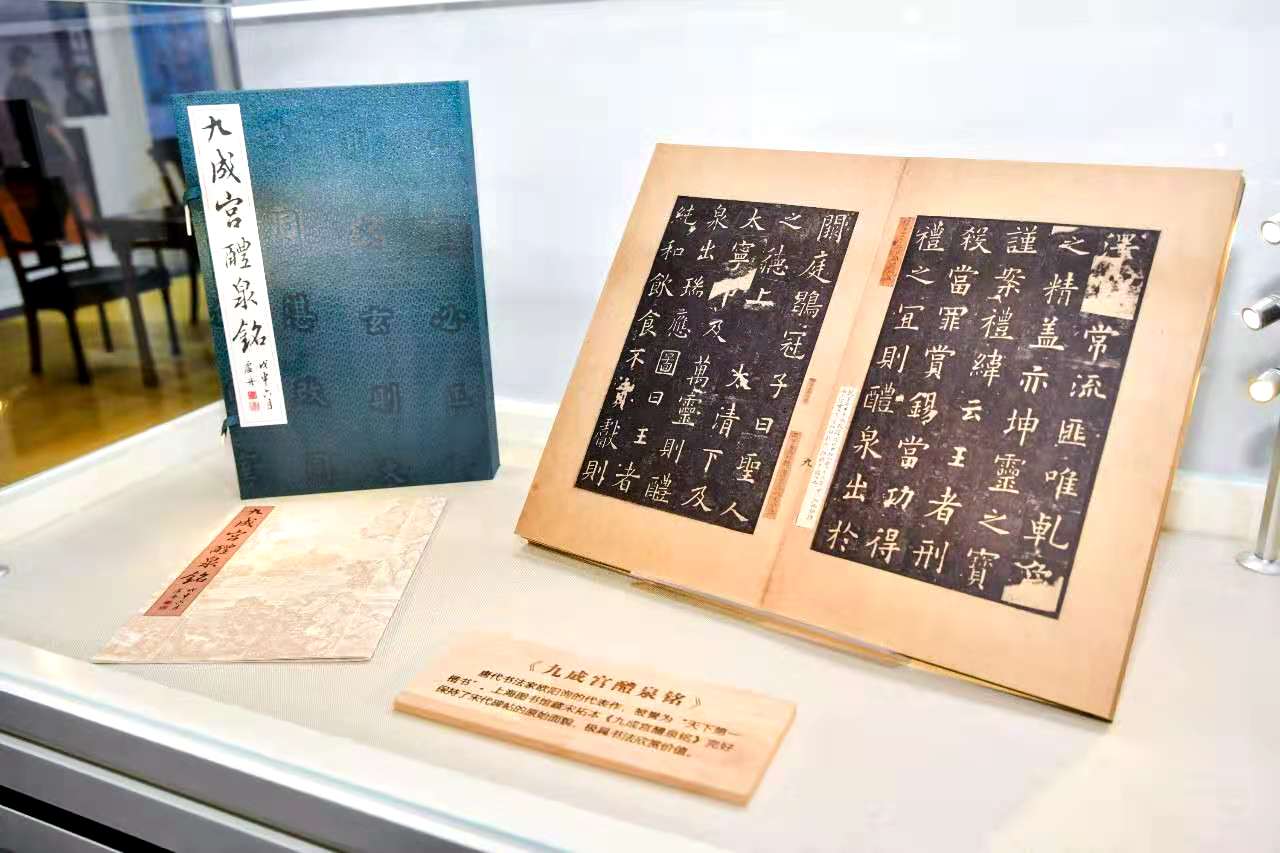 九成宮醴泉銘
戊申六月
九成宮醴泉銘
澤常流匪唯乾象
之精盖亦坤靈之寶
謹案禮緯云王者刑
殺當罪賞錫當功得
禮之宜則醴泉出於
九
闕庭鶡冠子曰聖人
之德上及太清下及
太寧中及萬靈則醴
泉出瑞應圖曰王者
純和飲食不貢獻則
《九成宫醴泉铭》
唐代书法家欧阳询的代表作，被誉为“天下第一
楷书”。上海图书馆藏宋拓本《九成宫醴泉铭》完好
保持了宋代碑帖的原始面貌，极具书法欣赏价值。